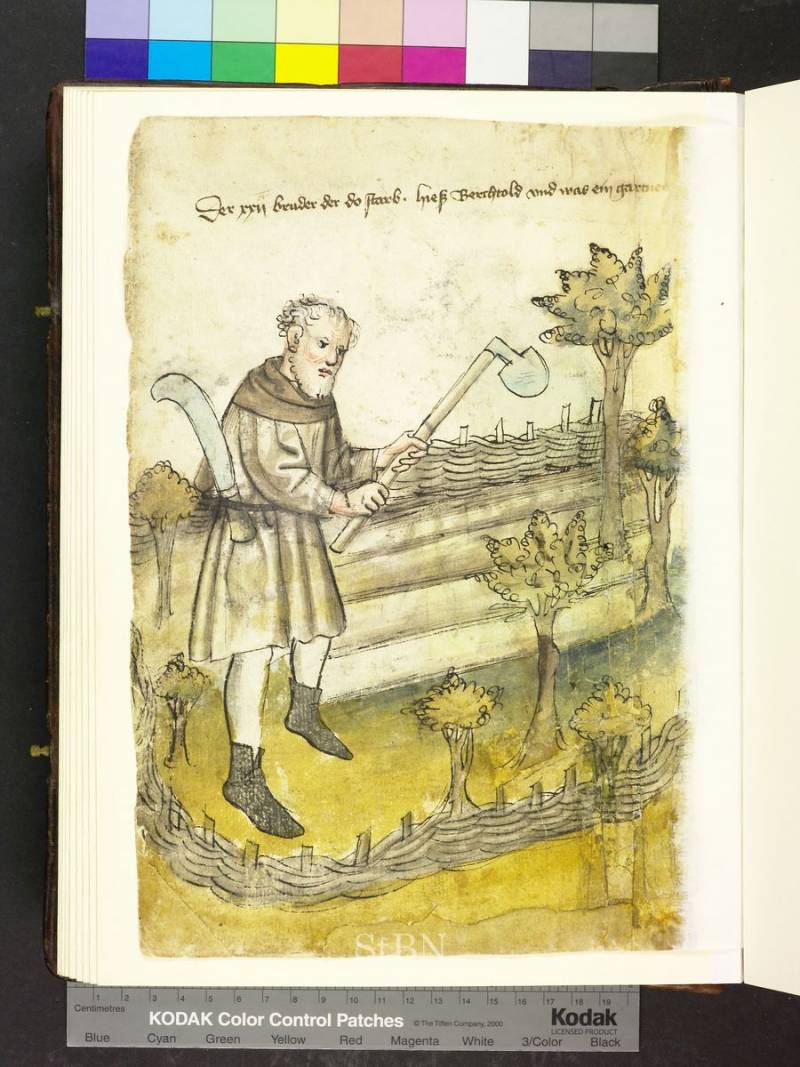 Der xxii bruder der do starb · hieß Berchtold vnd was ein gartner
StBN
1 2 3 4 5 6 7 8 9 10 11 12 13 14 15 16 17 18 19
Centimetres
KODAK Color Control Patches © The Tiffen Company, 2000 Kodak
LICENSED PRODUCT
Blue Cyan Green Yellow Red Magenta White 3/Color Black